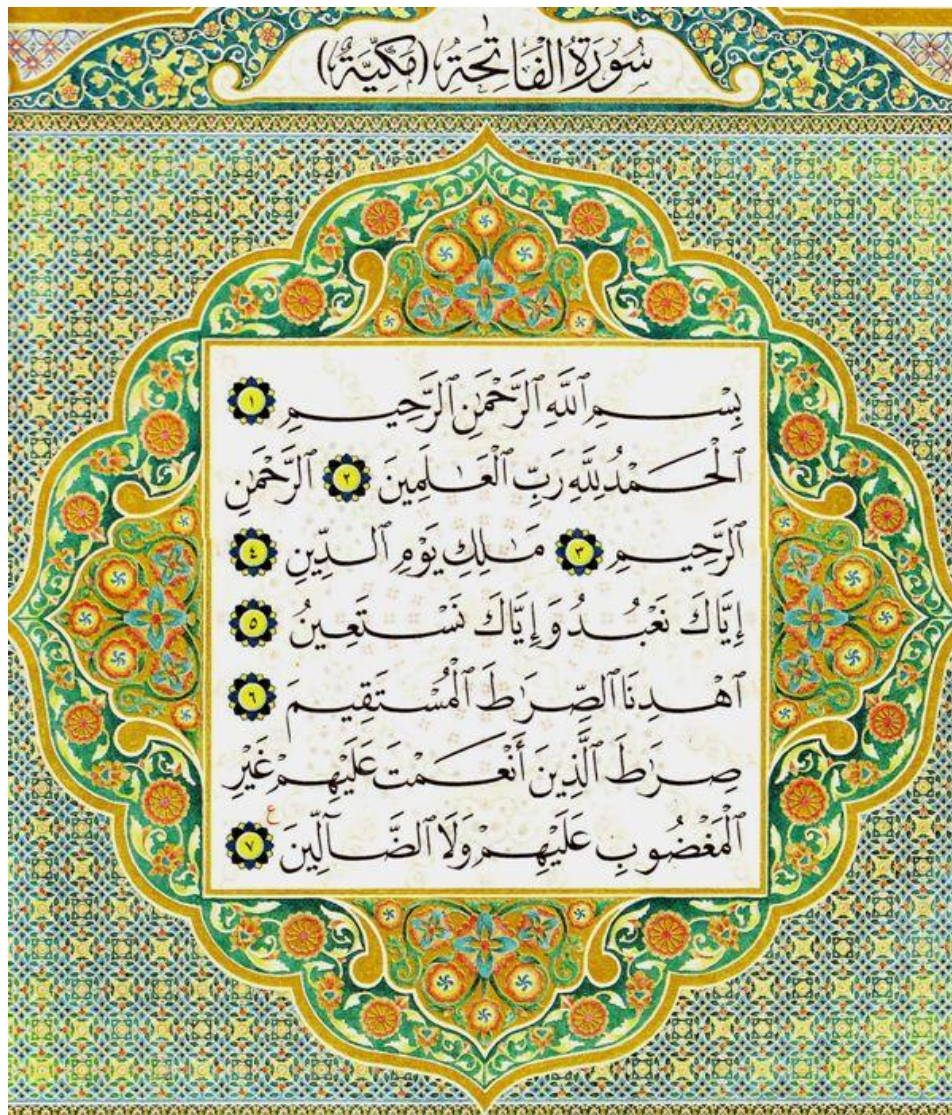 ١
سُورَةُ الْفَاتِحَةِ (مَكِّيَّةٌ)
بِسْمِ ٱللَّهِ ٱلرَّحْمَٰنِ ٱلرَّحِيمِ ١
ٱلْحَمْدُ لِلَّهِ رَبِّ ٱلْعَٰلَمِينَ ٢ ٱلرَّحْمَٰنِ
ٱلرَّحِيمِ ٣ مَٰلِكِ يَوْمِ ٱلدِّينِ ٤
إِيَّاكَ نَعْبُدُ وَإِيَّاكَ نَسْتَعِينُ ٥
ٱهْدِنَا ٱلصِّرَٰطَ ٱلْمُسْتَقِيمَ ٦
صِرَٰطَ ٱلَّذِينَ أَنْعَمْتَ عَلَيْهِمْ غَيْرِ
ٱلْمَغْضُوبِ عَلَيْهِمْ وَلَا ٱلضَّآلِّينَ ٧ ع